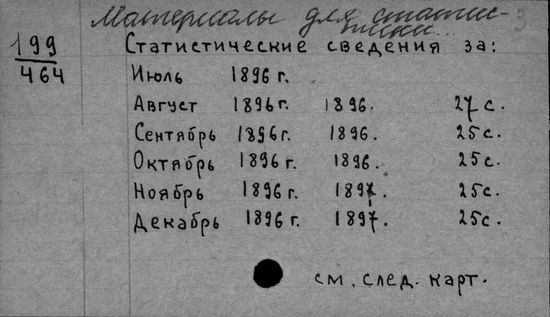 Материалы для статис-
тики...
3
199
464
Статистические сведения за:
Июль 1896 г.
Август 1896 г. 1896. 27 с.
Сентябрь 1896 г. 1896. 25 с.
Октябрь 1896 г. 1896. 25 с.
Ноябрь 1896 г. 1897. 25 с.
Декабрь 1896 г. 1897. 25 с.
см. след. карт.